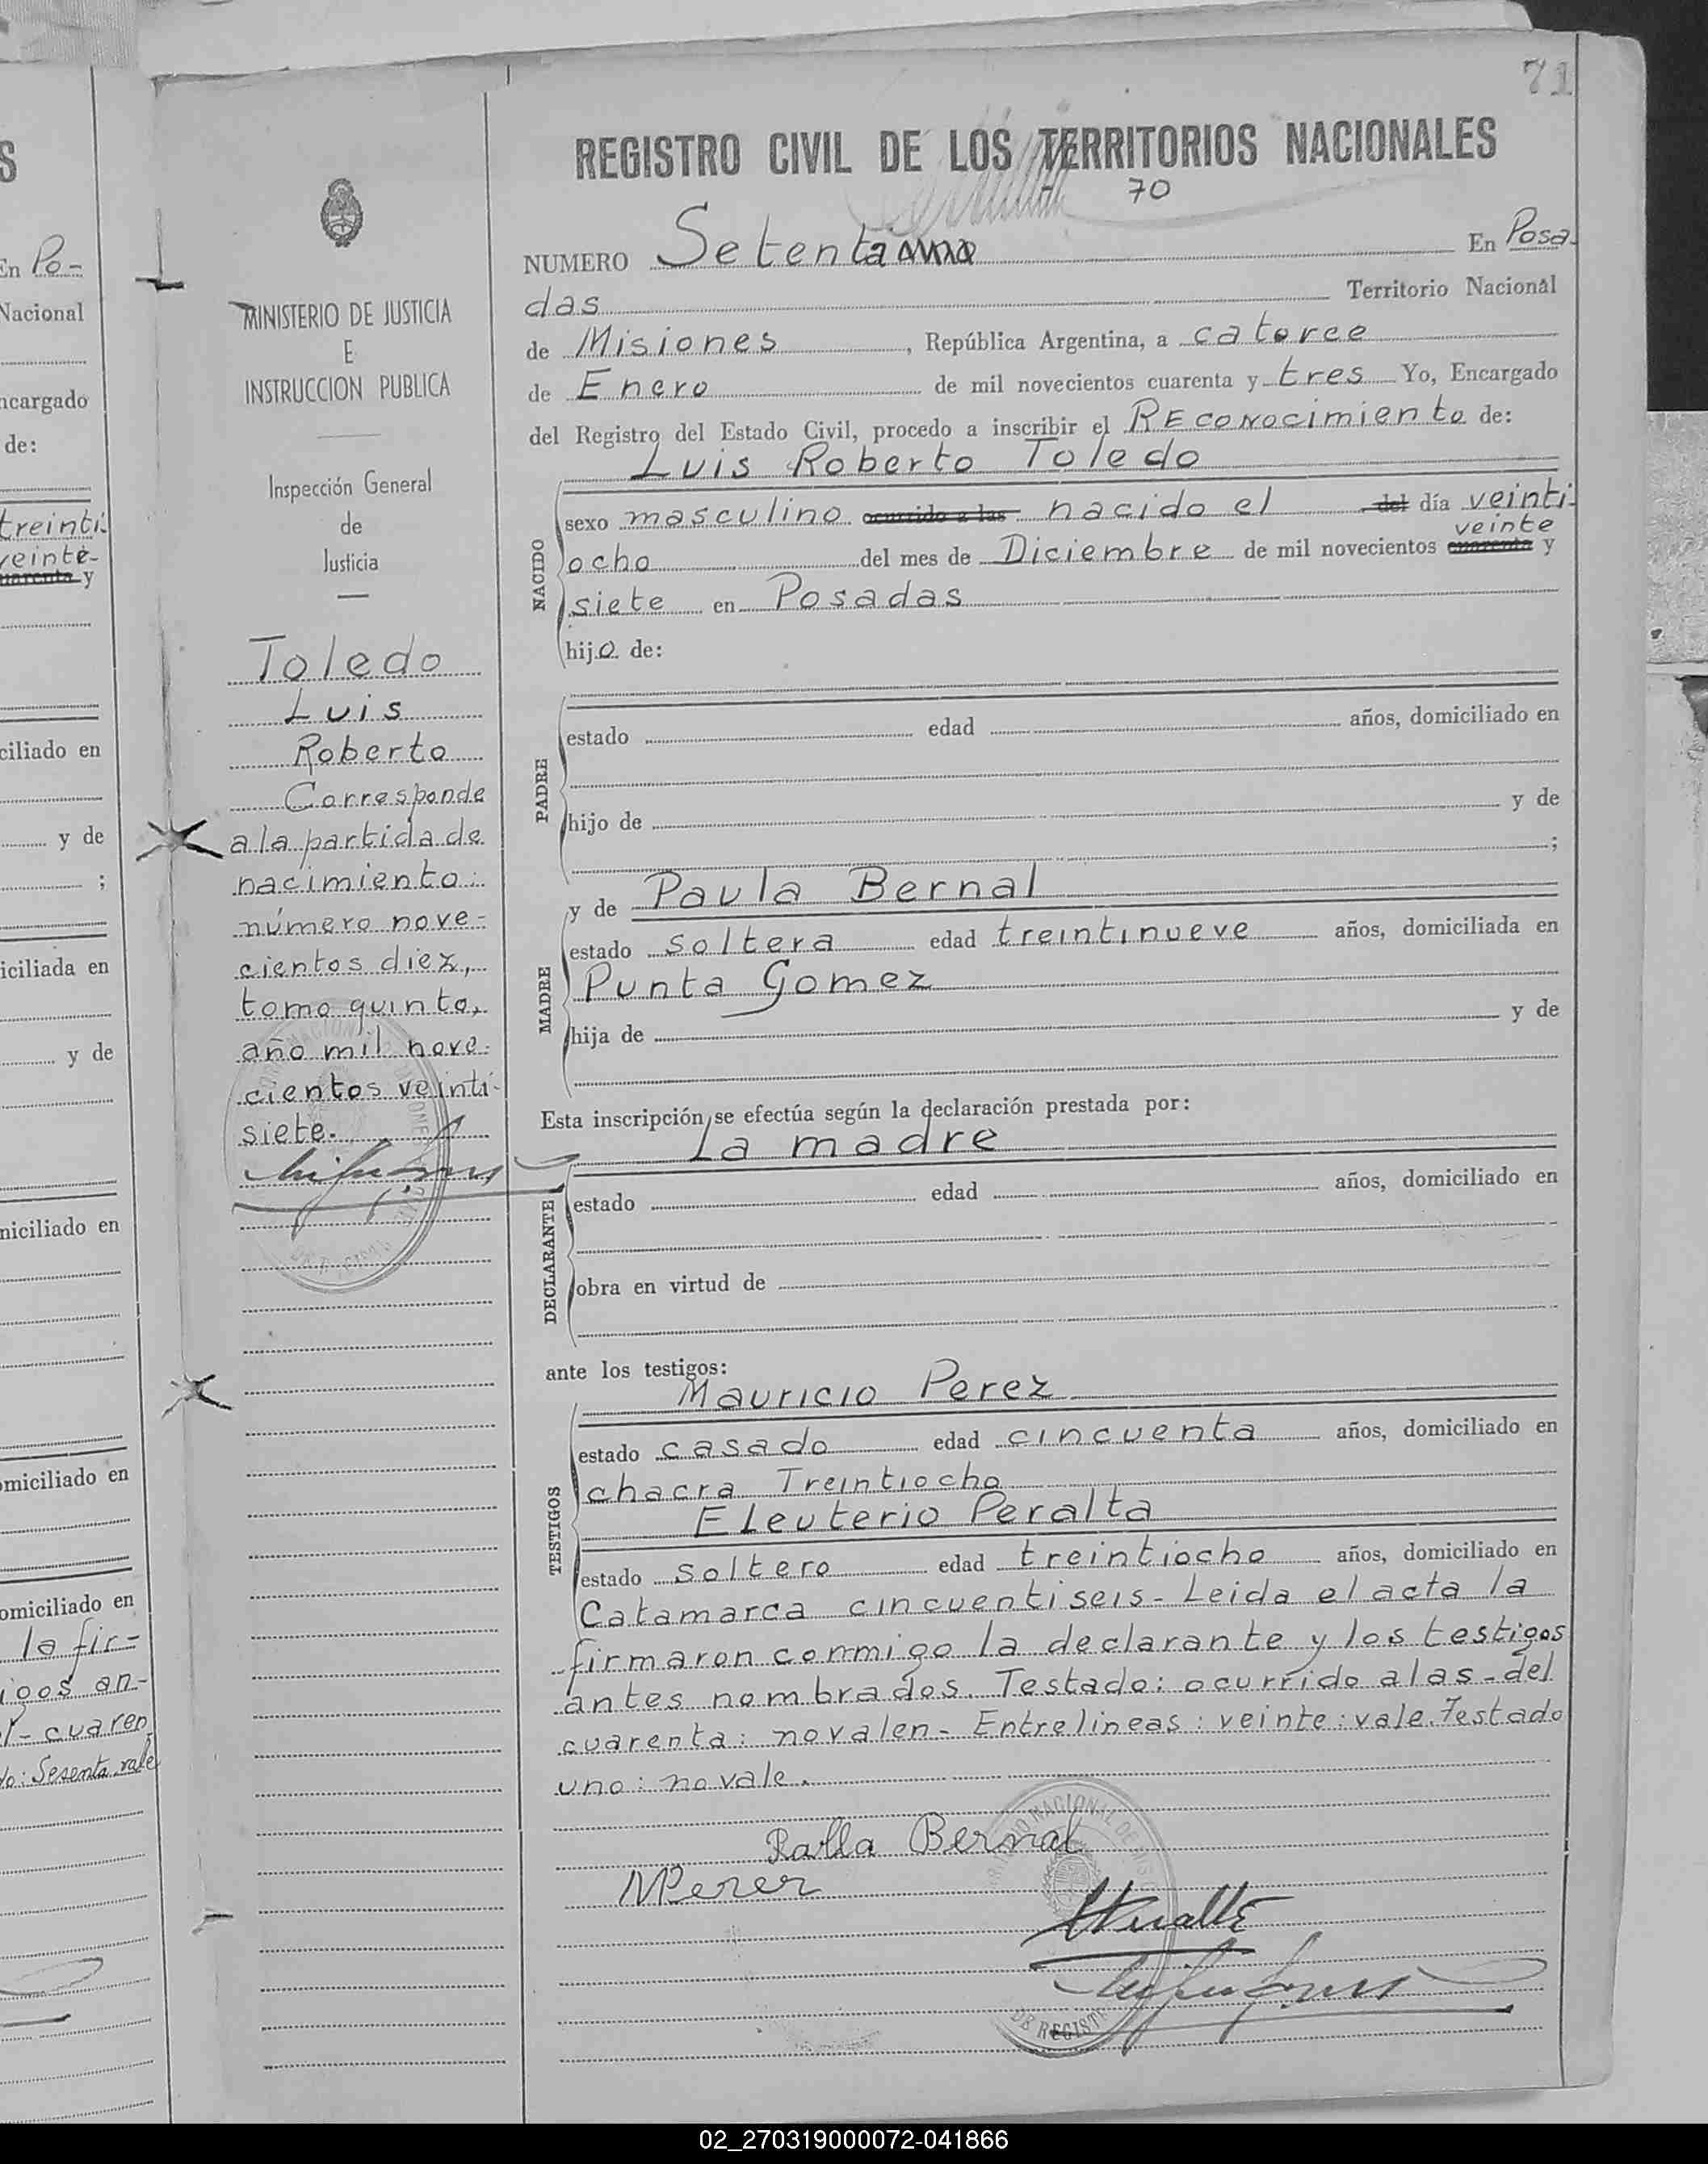 71
REGISTRO CIVIL DE LOS TERRITORIOS NACIONALES
70
NUMERO Setenta uno En Posa-
das Territorio Nacional
de Misiones, República Argentina, a catorce
de Enero de mil novecientos cuarenta y tres Yo, Encargado
del Registro del Estado Civil, procedo a inscribir el REconocimiento de:
Luis Roberto Toledo
NACIDO
sexo masculino ocurrido a las nacido el del día veinti-
veinte
ocho del mes de Diciembre de mil novecientos cuarenta y
siete en Posadas
hijo de:
PADRE
estado edad años, domiciliado en
hijo de y de
;
y de Paula Bernal
MADRE
estado soltera edad treintinueve años, domiciliada en
Punta Gomez
hija de y de
Esta inscripción se efectúa según la declaración prestada por:
La madre
DECLARANTE
estado edad años, domiciliado en
obra en virtud de
ante los testigos:
Mauricio Perez
TESTIGOS
estado casado edad cincuenta años, domiciliado en
chacra Treintiocho
Eleuterio Peralta
estado soltero edad treintiocho años, domiciliado en
Catamarca cincuentiseis- Leida el acta la
firmaron conmigo la declarante y los testigos
antes nombrados. Testado: ocurrido alas-del
cuarenta: no valen- Entrelineas: veinte: vale. Testado
uno: no vale.
Palla Bernal
MPerez
MINISTERIO DE JUSTICIA
E
INSTRUCCION PUBLICA
Inspección General
de
Justicia
Toledo
Luis
Roberto
Corresponde
a la partida de
nacimiento:
número nove-
cientos diez,
tomo quinto,
año mil nove-
cientos veinti-
siete.
S
En Po-
Nacional
ncargado
de:
treinti-
veinte-
uarenta y
ciliado en
y de
;
iciliada en
y de
miciliado en
omiciliado en
omiciliado en
la fir-
igos an-
l- cuaren
do: Sesenta vale
DE REGIST
02_270319000072-041866